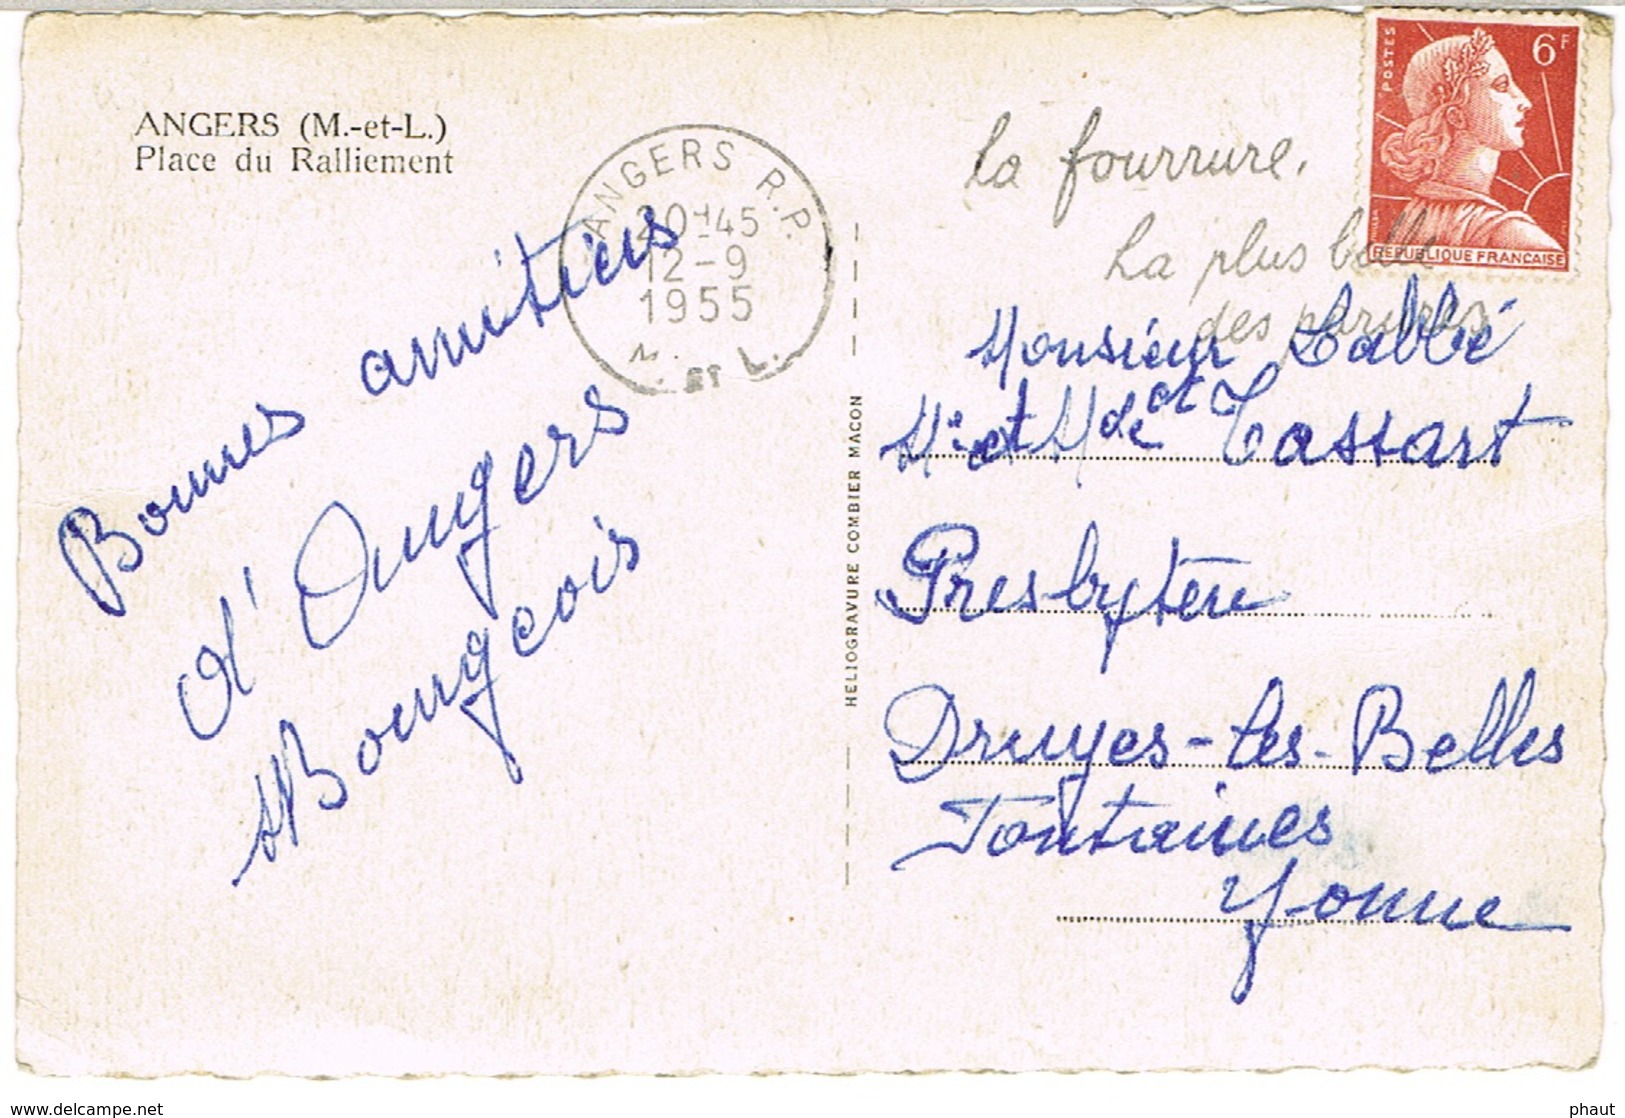 ANGERS (M.-et-L.)
Place du Ralliement
ANGERS R.P.
20H45
12-9
1955
M. ET L.
la fourrure.
La plus belle
des parures
POSTES
6F
REPUBLIQUE FRANCAISE
Bonnes amitiés
d'Angers
Bourgeois
HELIOGRAVURE COMBIER MACON
Monsieur L'abbé
et
Me et Mde Tassart
Presbytère
Druyes-les-Belles
Fontaines
Yonne
delcampe.net
phaut